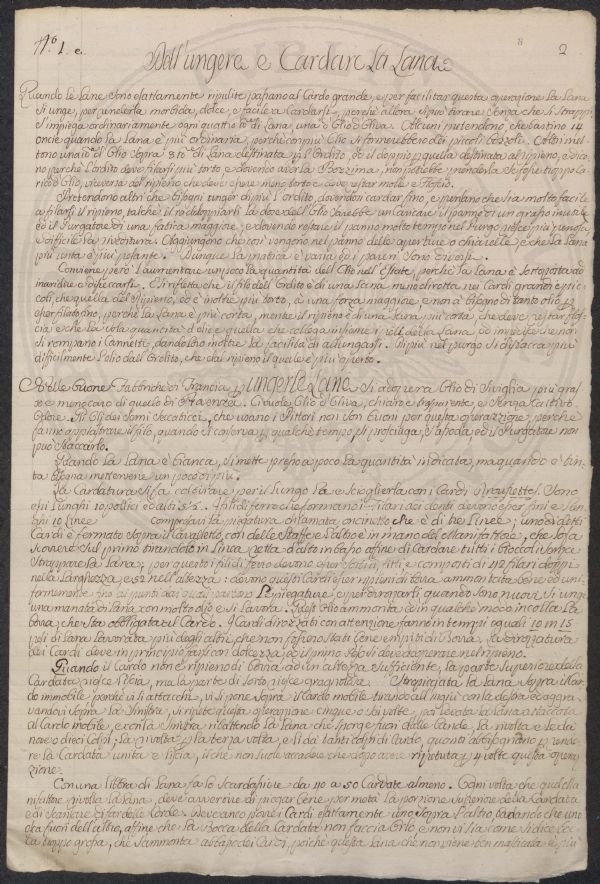 N.º 1. e.
8
2
Dell'ungere e Cardare La Lana
Quando Le Lane sono esattamente ripulite passano al Cardo grande, e per facilitar questa operazione La Lana
si unge, per renderla morbida, dolce, e facile a Cardarsi, perche allora si può tirare senza che si strappi
S'impiega ordinariamente ogni quattro di Lana, una d'Olio d'Oliva. Alcuni pretendono, che bastino 14
oncie quando La Lana è più ordinaria, perche con più Olio si formerebbero dei piccoli Altri met-
tono una d'Olio sopra 8 di Lana destinata p. l'Ordito, ed il doppio p. quella destinata al ripieno, e dico-
no perche l'ordito deve filarsi più torto e dovendo aver la Bozzima, non potrebbe prenderla se fosse troppo ca-
rico d'Olio, viceversa del ripieno che deve essere meno torto e deve restar molle e
Pretendono altri che bisogni unger di più L'ordito, dovendosi cardar fino, e puntano che sia molto facile
a filarsi il ripieno, talche il raddoppiarli la dose dell'Olio sarebbe un caricare il panno di un grasso inutile
ed il Purgatore di una fatica maggiore, e dovendo restare il panno molto tempo nel Purgo riesce più penosa
e difficile la Aggiungono che così vengono nel panno delle aperture o chiarelle, e che la Lana
più unta è più pesante. Dunque La pratica è varia ed i pareri sono diversi.
Conviene però l'aumentare un poco la quantità dell'Olio nell'Estate, perche la Lana è sottoposta ad
inaridirsi e disseccarsi. E si rifletta che il filo dell'Ordito è di una Lana meno diretta nei Cardi grandi e pic-
coli, che quella del ripieno, ed è inoltre più torto, à una forza maggiore e non à bisogno di tanto olio p.
esser filato fino, perche La Lana è più corta, mentre il ripieno è di una Lana più corta che deve restar flos-
cia e che La sola quantità d'olio è quella che collega insieme i peli della Lana, ed impedisce che non
si rompano i Cannetti, dandoli inoltre la facilità di allungarsi. Di più nel purgo si distacca più
difficilmente L'olio dall'Ordito, che dal ripieno il quale è più aperto.
Nelle buone Fabbriche di Francia p. ungere le Lane si adopera Olio di Siviglia più gras-
so e meno caro di quello di Provenza. Ci vuole Olio d'Oliva, chiaro e trasparente, e senza cattivo
Odore. Gli Oli dei semi che usano i Pittori non son buoni per questa operazione, perche
fanno appiastrare il filo, quando si conserva p. qualche tempo, si s'assoda, ed il Purgatore non
può staccarlo.
Quando La Lana è bianca, si mette presso a poco La quantità indicata, ma quando è tin-
ta bisogna mettervene un poco di più.
La Cardatura si fa col tirare, per il lungo La e scioglierla con i Cardi Sono
essi Lunghi 10 pollici ed alti 5½. I fili di ferro che formano i filari dei denti devono esser fini e lun-
ghi 10 Linee compresavi la piegatura chiamata oncinetto che è di tre Linee; uno di detti
Cardi è fermato sopra il Cavalletto, con delle staffe e l'altro è in mano del Manifattore, che lo fa
scorrere sul primo tirandolo in Linea retta d'alto in basso affine di Cardare tutti i bioccoli senza
strappare La Lana, per questo i fili di ferro devono esser fatti, fitti, e composti di 112 filari doppi
nella Larghezza, e 52 nell'altezza: devono questi Cardi esser ripieni di borra ammontata bene ed uni-
formemente fino al punto dal quale partono Le piegature, e per dirozzarli, quando sono nuovi si unge
una manata di Lana con molto olio e si lavora. Quest'Olio ammonta e in qualche modo incolla La
borra, che sta obbligata sul Cardo. I Cardi dirozzati con attenzione fanno in tempi eguali 10 in 15
peli di Lana Lavorata più degli altri, che non fossero stati bene empiti di borra. La dirozzatura
dei Cardi deve in principio farsi con dolcezza, ed il primo Pelo si deve adoperare nel ripieno.
Quando il Cardo non è ripieno di borra ad un'altezza sufficiente, La parte superiore della
Cardata riesce Liscia, ma la parte di sotto, riesce Stropicciata La Lana sopra il Car-
do immobile perche vi si attacchi, vi si pone sopra il Cardo mobile tirandolo all'ingiù con la destra e aggra-
vandovi sopra La sinistra, si ripete questa operazione cinque o sei volte, poi levata La Lana attaccata
al Cardo mobile, e con la sinistra ribattendo La Lana che sporge fuori dalle bande, La rivolta e Le dà
nove o dieci Colpi, La rivolta p. La terza volta, e si dà tanti colpi di Cardo, quanti abbisognano p. rende-
re La Cardata unita e liscia, il che non suole accadere che dopo avere ripetuta p. 4 volte questa opera-
zione.
Con una libbra di Lana fa lo Scardassiere da 40 a 50 Cardate almeno. Ogni volta che quel Ma-
nifattore rivolta La Lana, deve avvertire di piegar bene per metà La porzione superiore della Cardata
e di scansare di farci delle Corde. Deve anco porre i Cardi esattamente uno sopra l'altro, badando che uno
stia fuori dell'altro, affine che La bocca della Cardata non faccia Orlo, e non vi sia come si dice boc-
ca troppo grossa, che s'ammonta a di Cardi, poiche questa Lana che non viene ben masticata è più